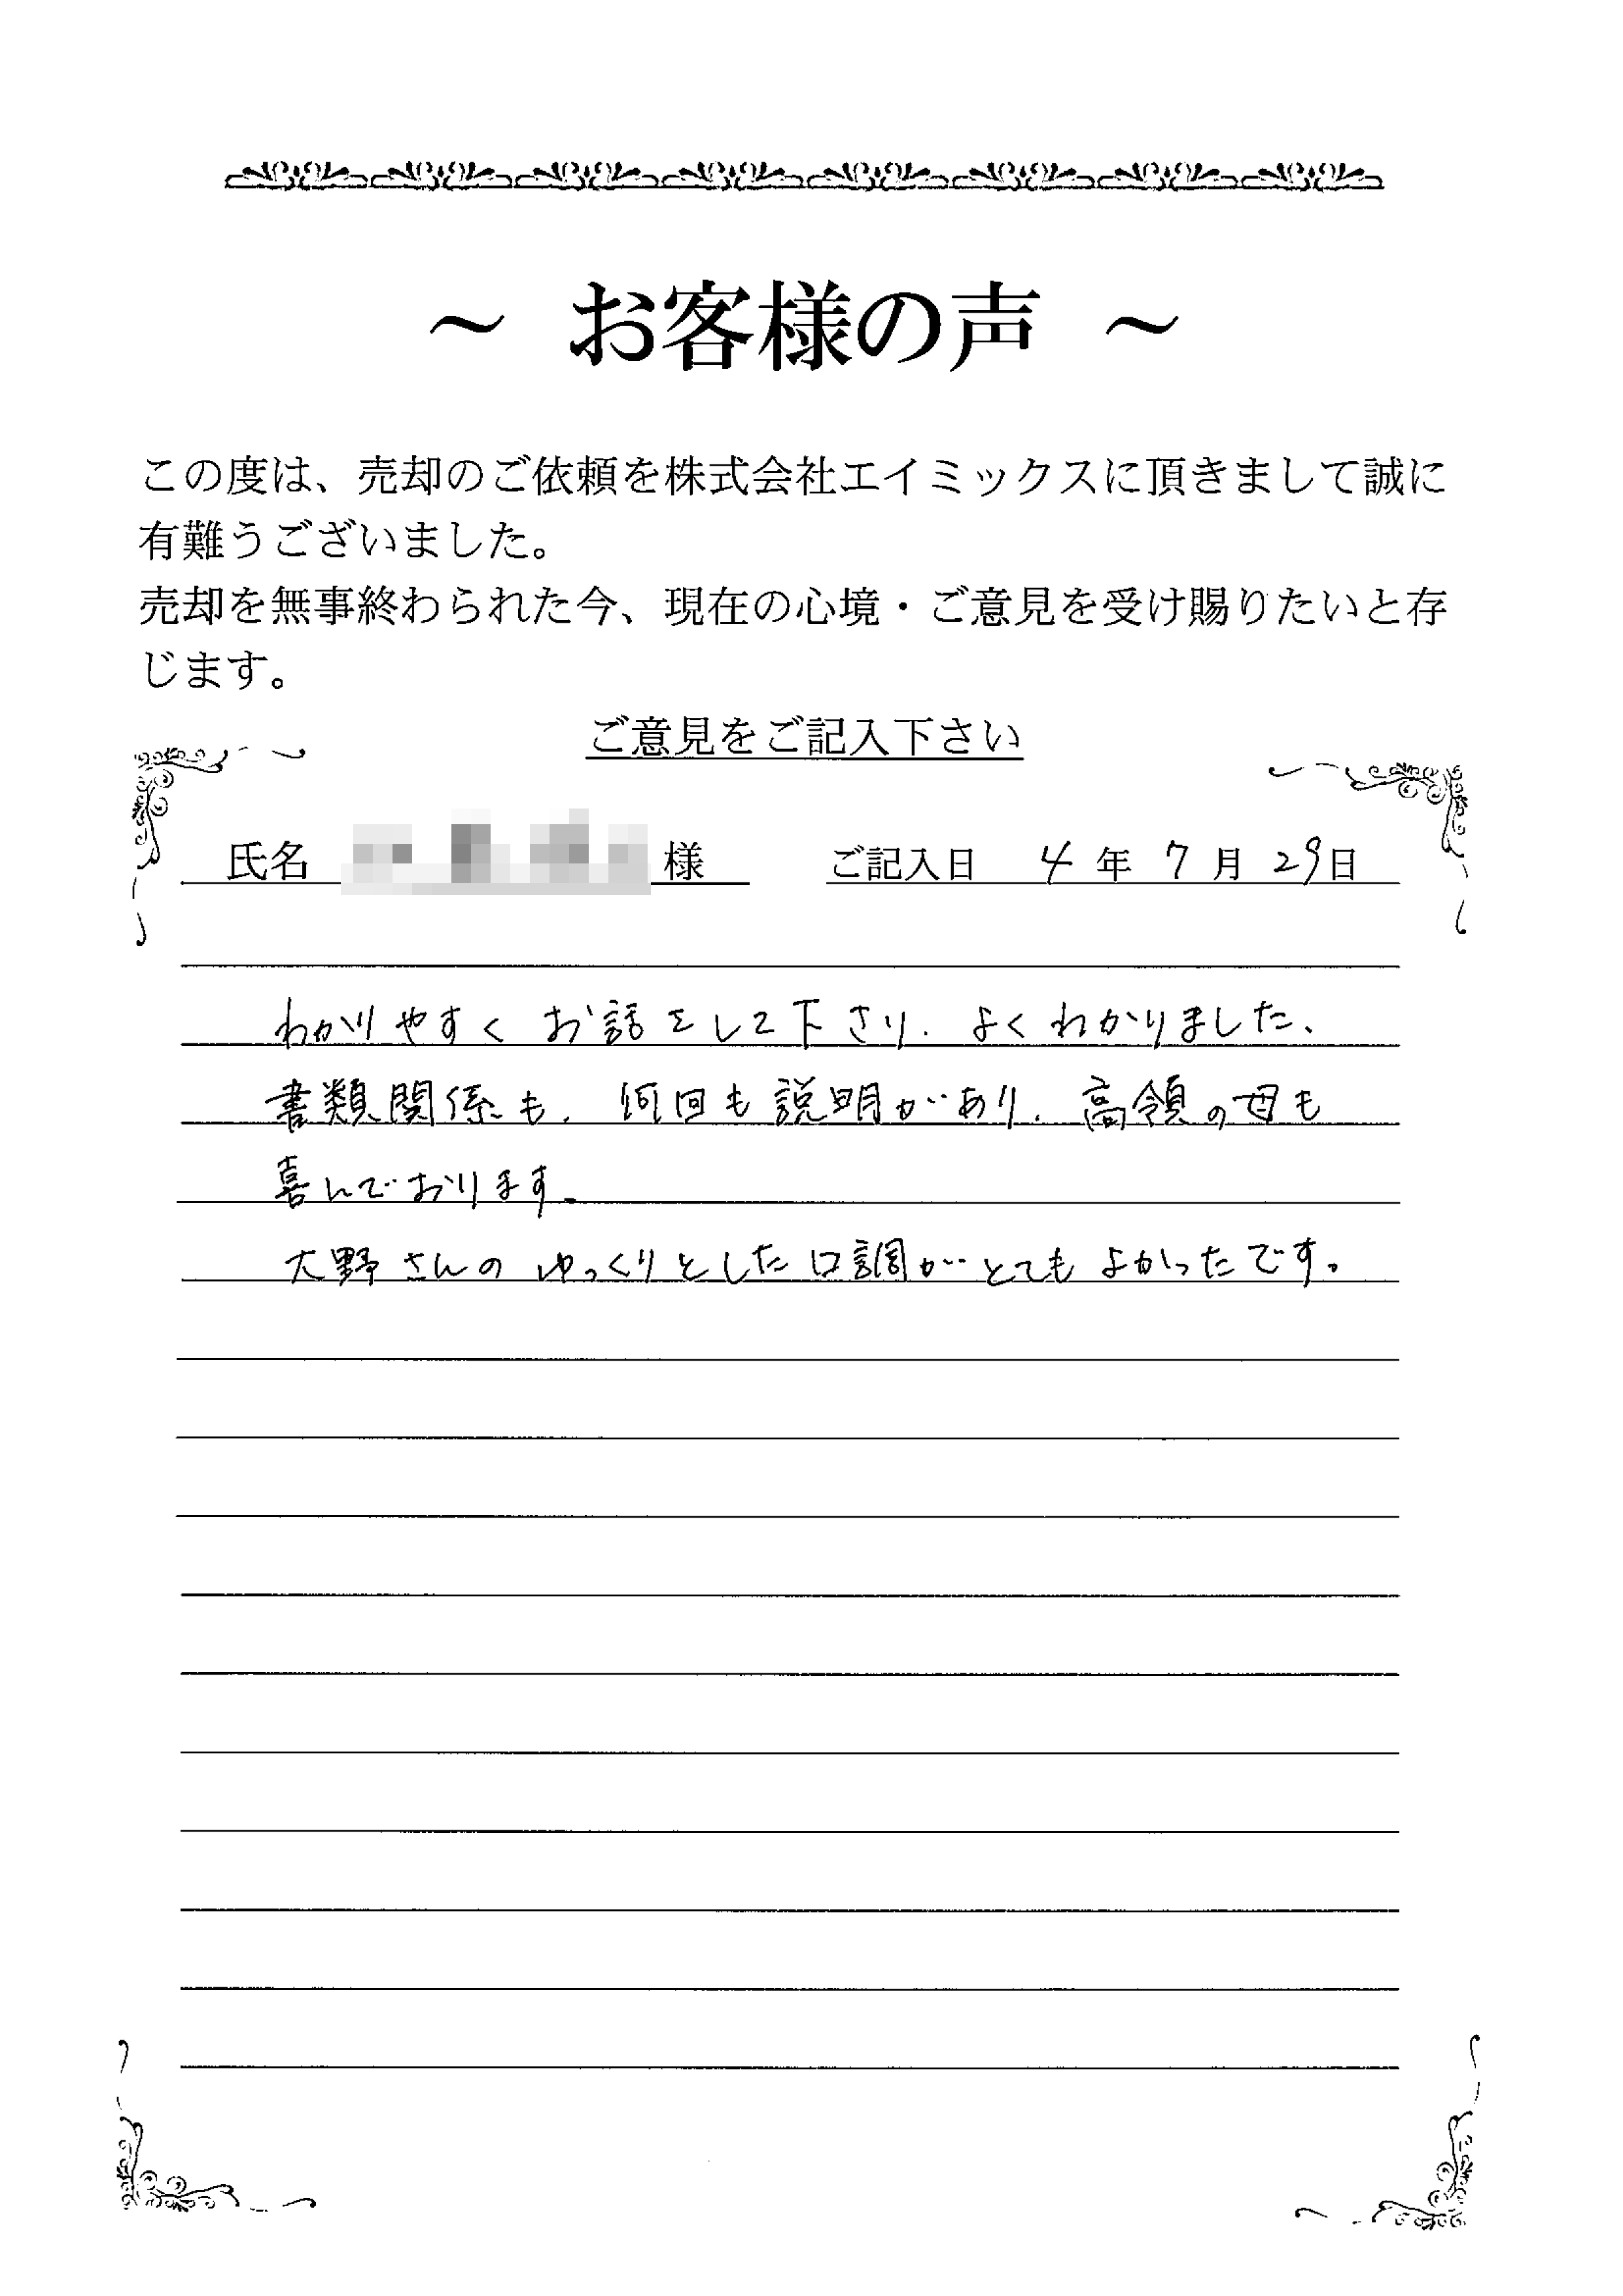 ～ お客様の声 ～
この度は、売却のご依頼を株式会社エイミックスに頂きまして誠に
有難うございました。
売却を無事終わられた今、現在の心境・ご意見を受け賜りたいと存
じます。
ご意見をご記入下さい
氏名 様 ご記入日 4 年 7 月 29 日
わかりやすく お話をして下さり、よくわかりました、
書類関係も、何回も説明があり、高領の母も
喜んでおります。
大野さんの ゆっくりとした口調がとても よかったです。